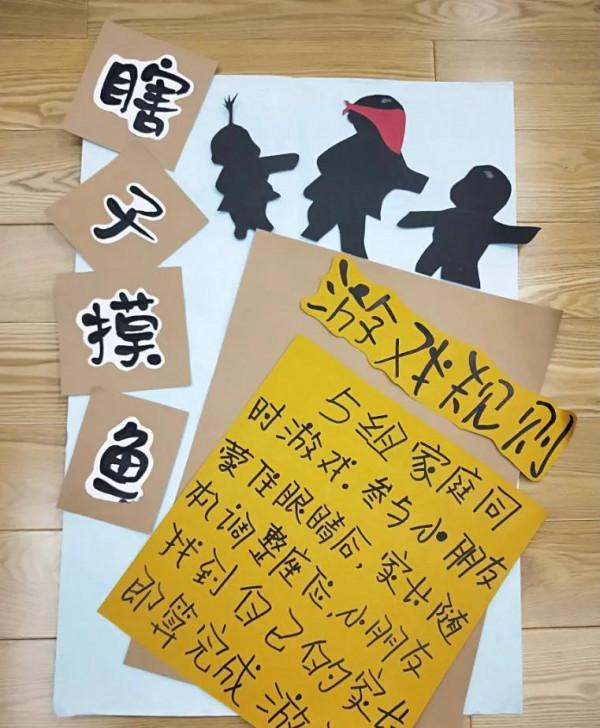 瞎子摸鱼
游戏规则
5组家庭同
时游戏.参与小朋友
蒙住眼睛后,家长随
机调整座位,小朋友
找到自己的家长
即算完成游